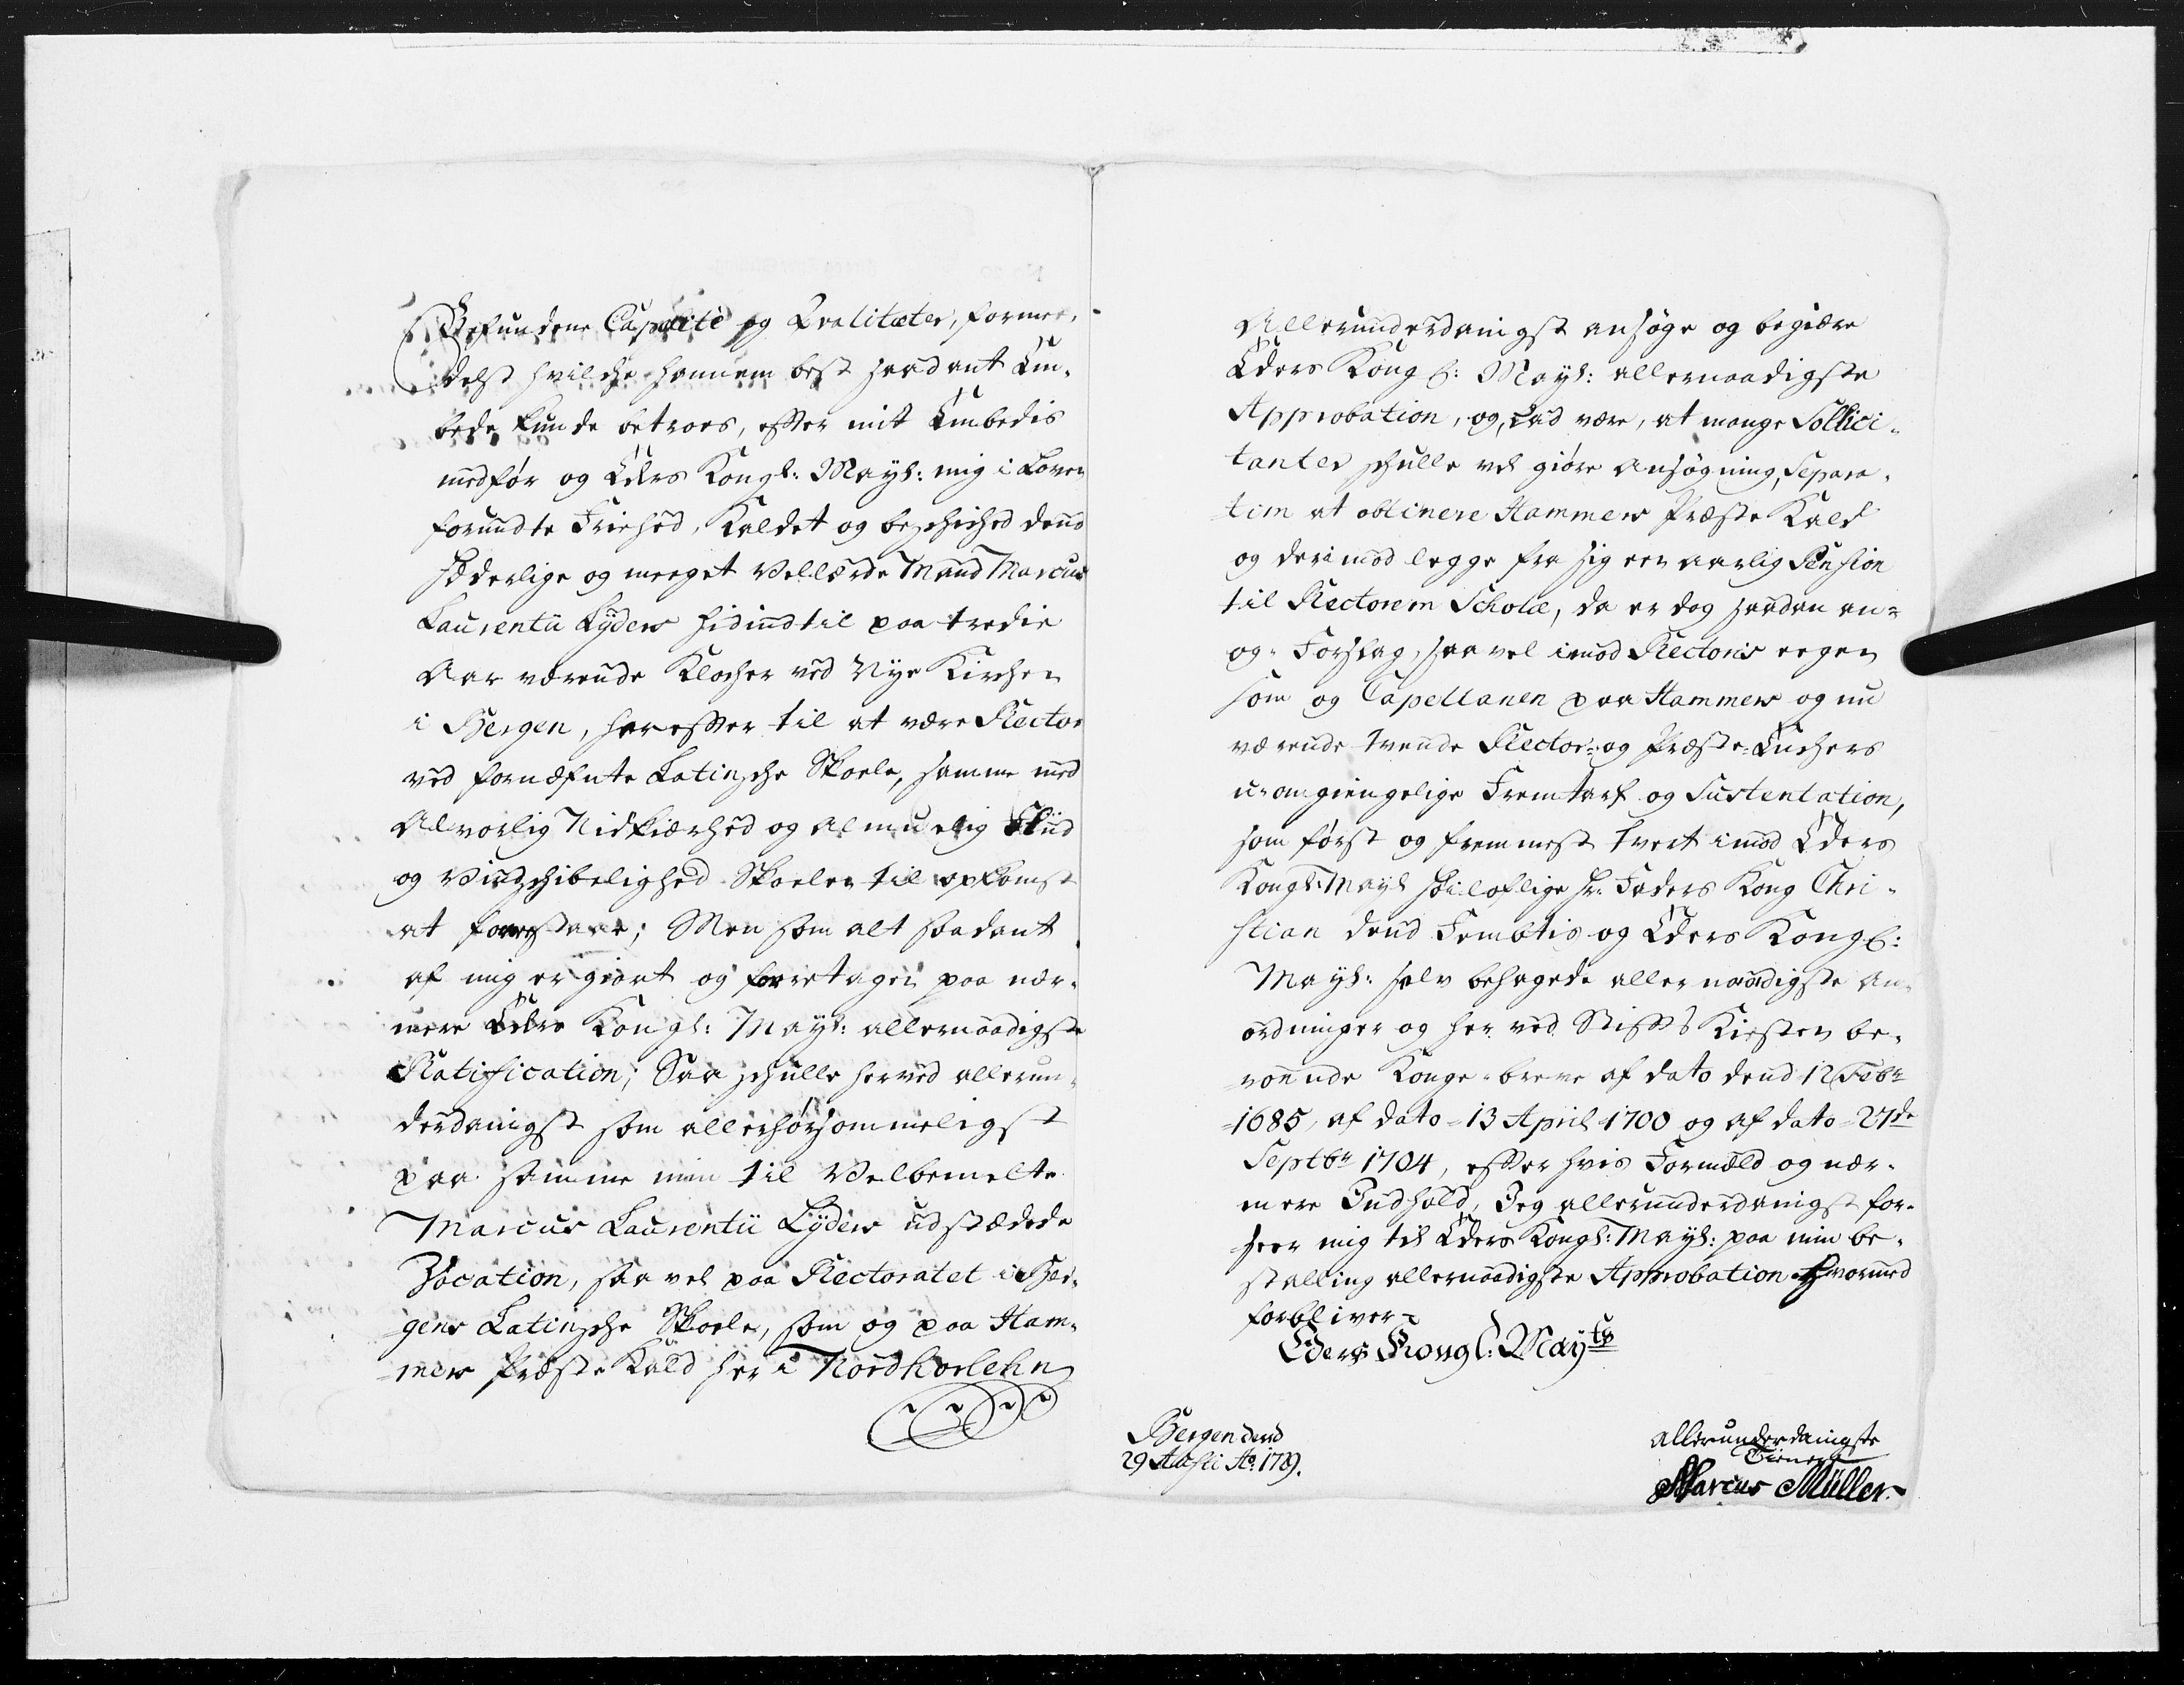 Befundene Capacité og Qvaliteter, forme¬
delst hvilche hannem best saadant Em¬
bede kunde betroes, efter mit Embedis
medfør og Eders Kongl: Mayt: mig i Loven
forundte Friehed, Kaldet og beschiched dend
Hæderlige og meeget Vellærde Mand Marcus
Laurentii Lyders hidindtil paa tredie
Aar værende Klocher ved Nye Kirchen
i Bergen, herefter til at være Rector
ved fornæfnte Latinsche Skoele, samme med
Alvorlig Nidkiærhed og Almuelig Fliid
og Vindschibelighed Skoelen til opkomst
at forestaae; Men som alt saadant
af mig er giort og foretagen paa nær¬
mere Eders Kongl: Mayt: allernaadigste
Ratification; Saa schulle herved allerun¬
derdanigst som allerhørsommeligst
paa samme min til Velbemelte
Marcus Laurentii Lyders udstædede
Vocation, saa vel paa Rectoratet i Ber¬
gens Latinsche Skoele, som og paa Ham¬
mers Præste Kald her i Nordhorlehn
Allerunderdanigst ansøge og begiære
Eders Kongl: Mayt: allernaadigste
Approbation, og, Lad være, at mange Sollici¬
tanter schulle vel giøre Ansøgning, Separa¬
tim at obtinere Hammers Præste Kald
og derimod legge fra sig een aarlig Pension
til Rectorem Scholæ, da er dog saadan an=
og Forslag, saa vel imod Rectoris eegen
som og Capellanen paa Hammers og nu
værende trende Rector= og Præste=Enchers
u=omgiengelige Fremtarf og Sustentation,
som først og fremmest tvert imod Eders
Kongl: Mayt høiloflige Hr: Faders Kong Chri¬
stian dend Femtis og Eders Kongl:
Mayt: selv behagede allernaadigste An¬
ordninger og her ved Stifts Kisten be¬
roende Konge=breve af dato dend 12 Febr
1685, af dato 13 April 1700 og af dato 27de
Septbr 1704, efter hvis Formæld og nær¬
mere Indhold, Jeg allerunderdanigst for¬
seer mig til Eders Kongl: Mayt: paa min be¬
stalling allernaadigste Approbation. Hvormed
forbliver
Eders Kongl: Mayts
Bergen dend
29 Ao: 1709.
allerunderdanigste
Tienere
Marcus Müller